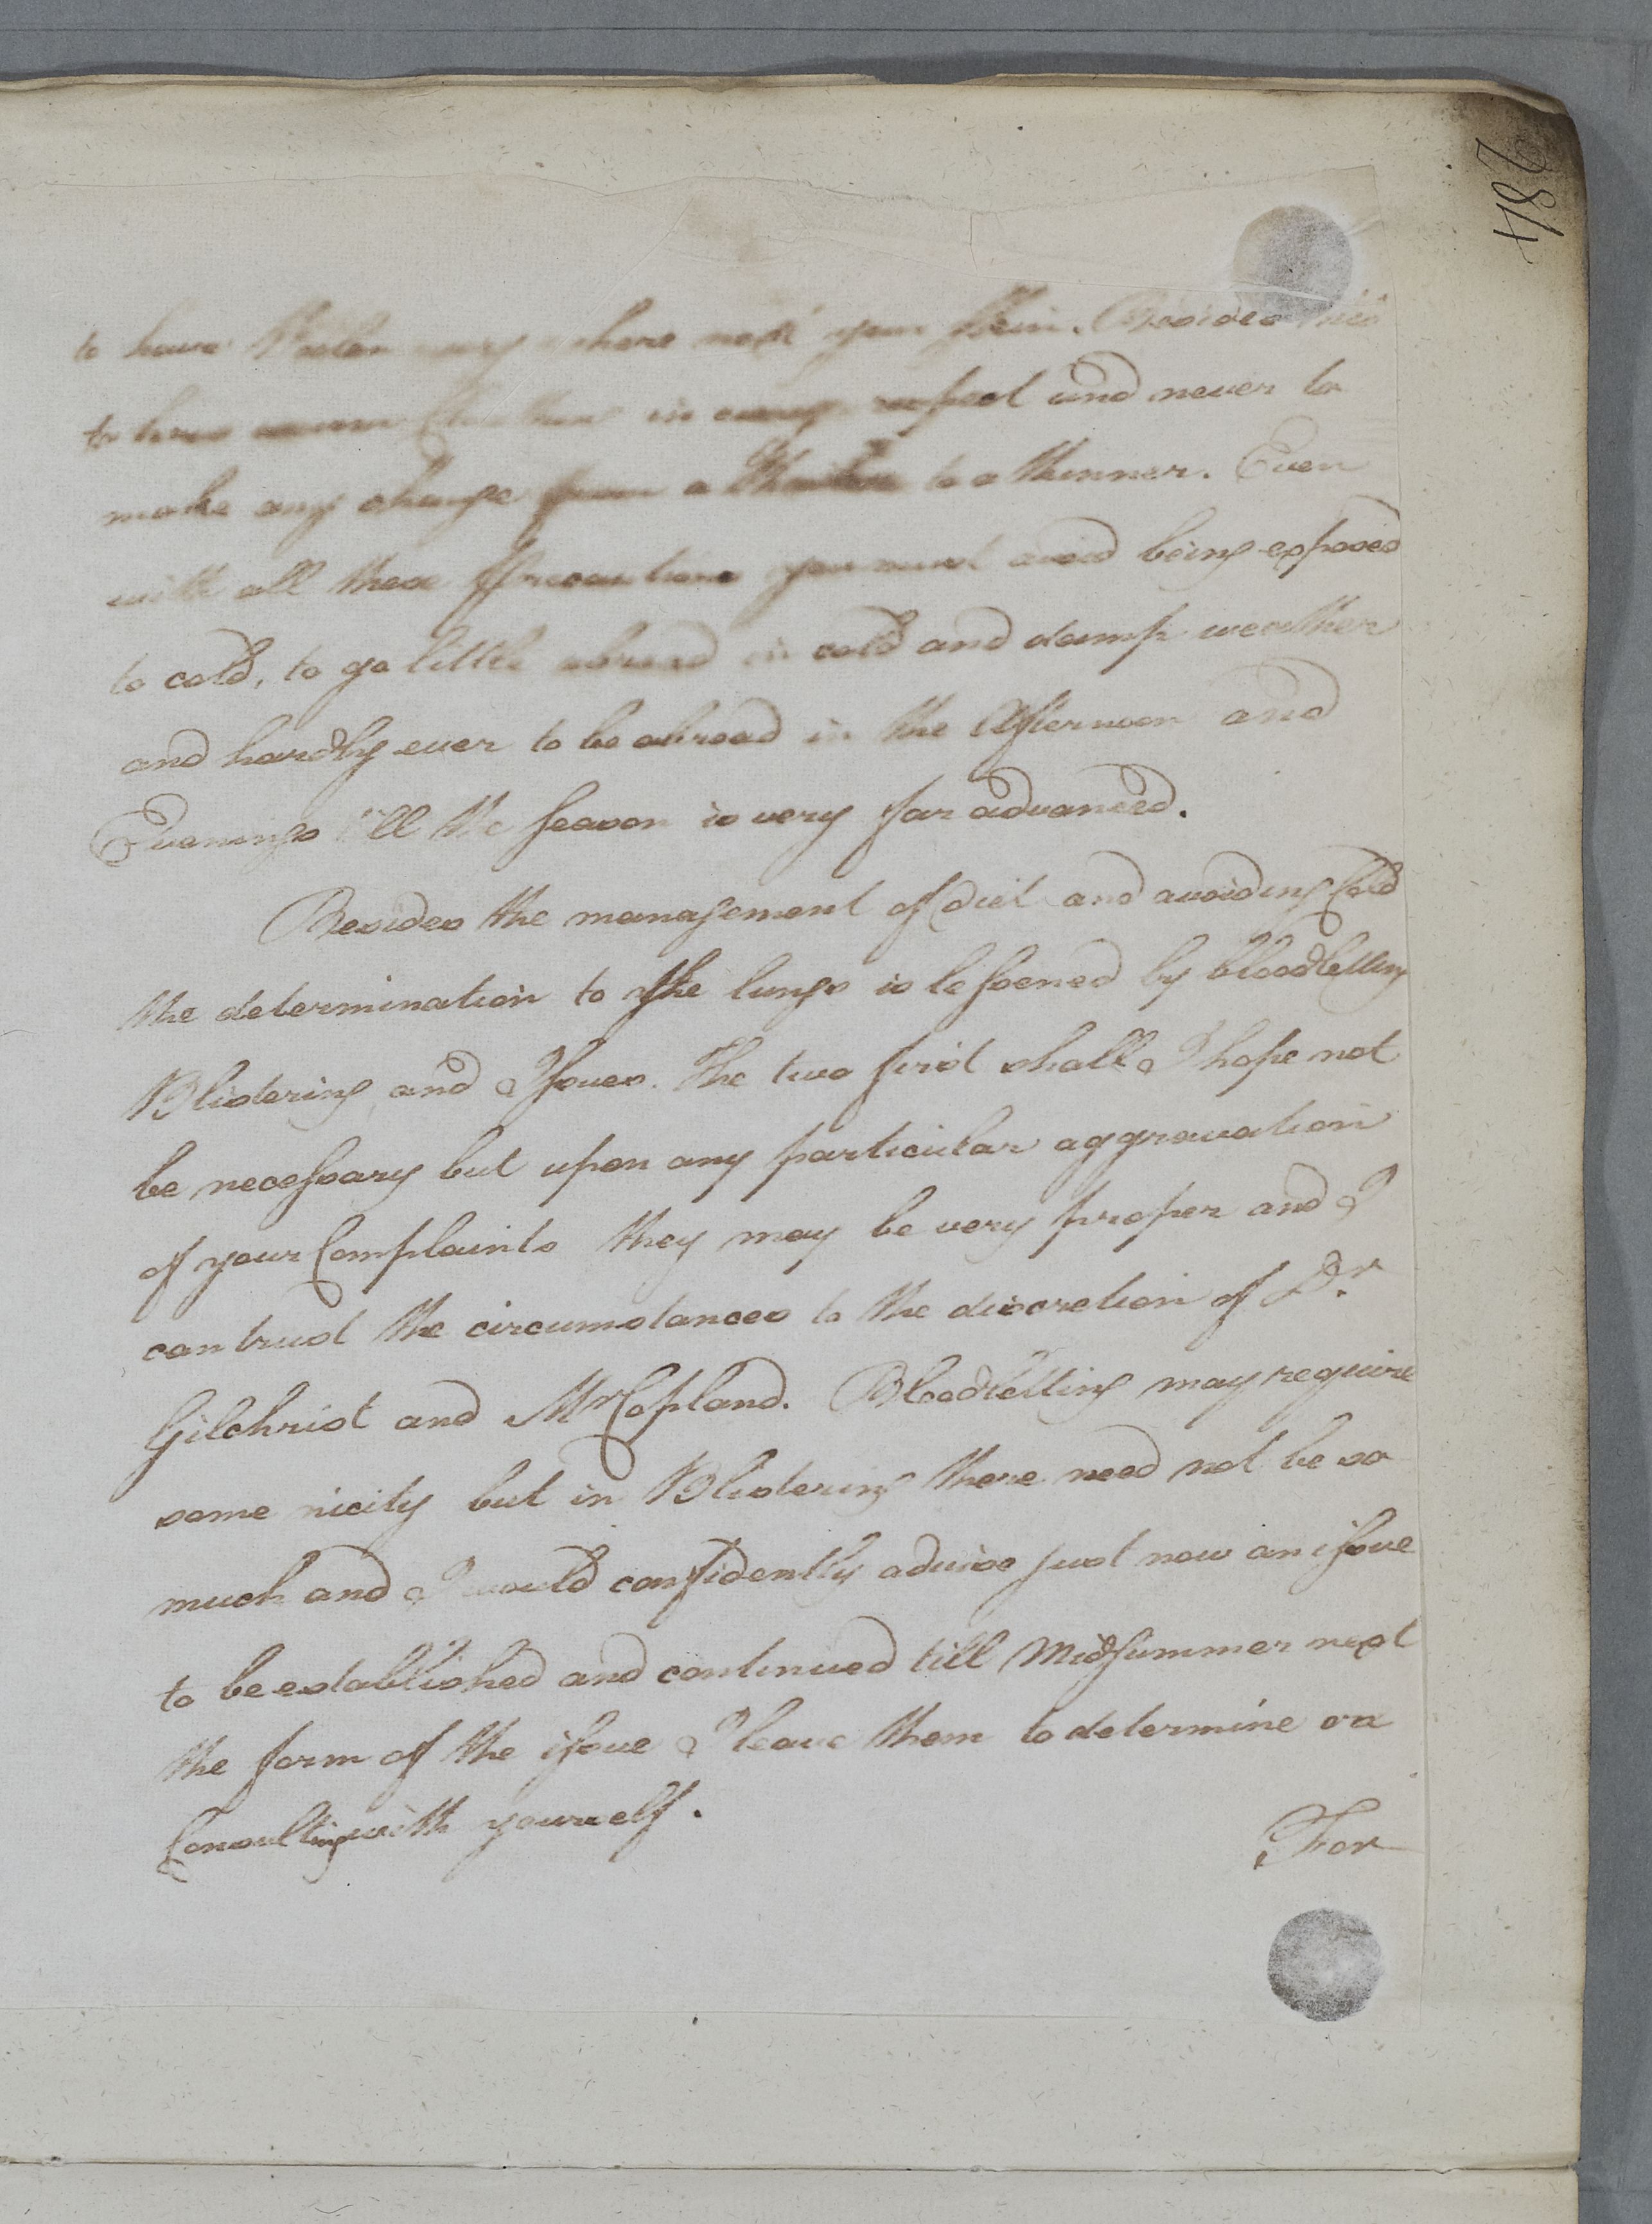 284
to have every where next your Skin. Besides this
to have warm in every respect and never to
make any change from a Thicker to a thinner. Even
with all these Precautions you must avoid being exposed
to cold, to go little abroad in cold and damp weather
and hardly ever to be abroad in the Afternoon and
Evenings till the Season is very far advanced.
Besides the management of diet and avoiding Cold
the determination to the lungs is lessened by bloodletting
Blistering and Issues. The two first shall I hope not
be necessary but upon any particular aggravation
of your Complaints they may be very proper and I
can trust the circumstances to the discretion of Dr.
Gilchrist and Mr Copland. Bloodletting may require
some nicity but in Blistering there need not be so
much and I would confidently advise just now an issue
to be established and continued till Midsummer next
the form of the issue I leave them to determine on
Consulting with yourself.
For